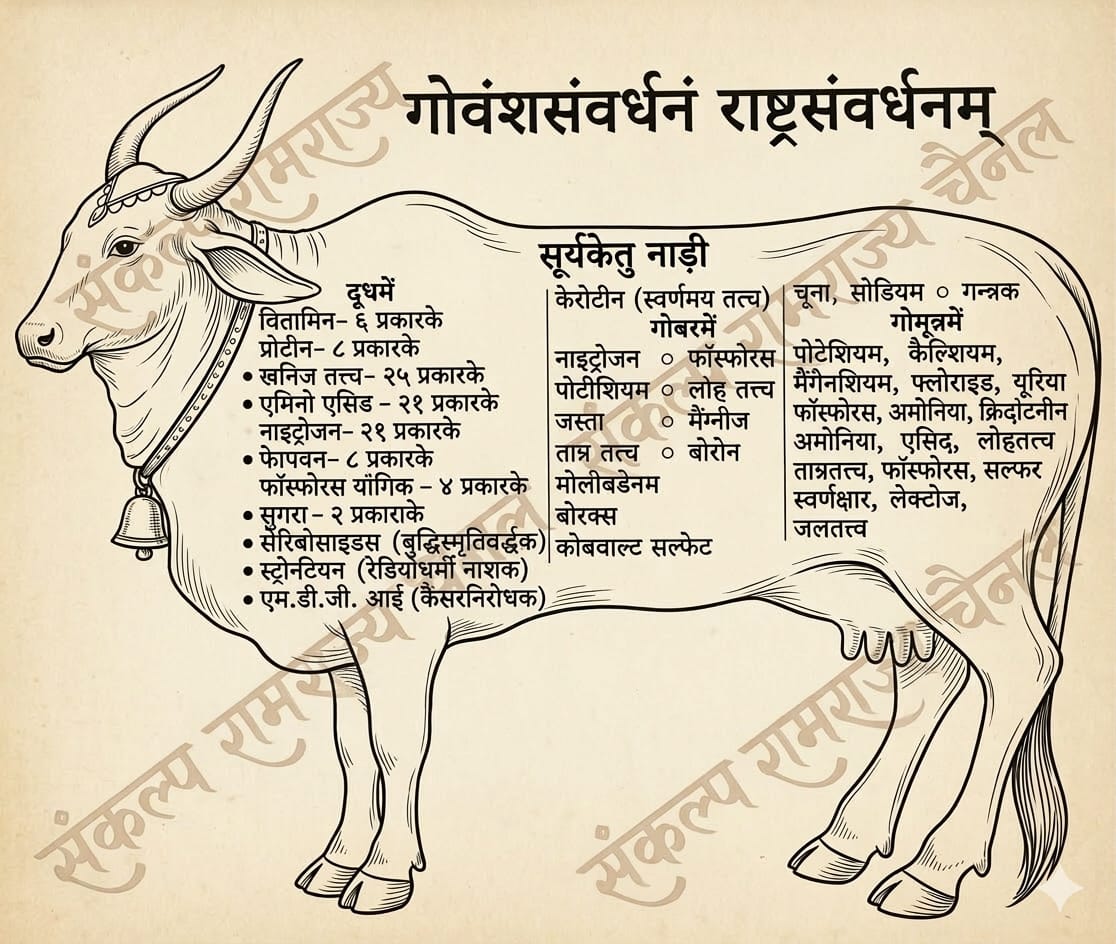 गोवंशसंवर्धनं राष्ट्रसंवर्धनम्
सूर्यकेतु नाड़ी
दूधमें
वितामिन– ६ प्रकारके
प्रोटीन– ८ प्रकारके
• खनिज तत्त्व– २५ प्रकारके
• एमिनो एसिड – २१ प्रकारके
नाइट्रोजन– २१ प्रकारके
• फेापवन– ८ प्रकारके
फॉस्फोरस यॉगिक – ४ प्रकारके
• सुगरा – २ प्रकाराके
• सेरिबोसाइडस (बुद्धिस्मृतिवर्द्धक)
• स्ट्रोनटियन (रेडियोधर्मी नाशक)
• एम.डी.जी. आई (कैंसरनिरोधक)
केरोटीन (स्वर्णमय तत्व)
गोबरमें
नाइट्रोजन ० फॉस्फोरस
पोटीशियम ० लोह तत्त्व
जस्ता ० मैंग्नीज
ताम्र तत्त्व ० बोरोन
मोलीबडेनम
बोरक्स
कोबवाल्ट सल्फेट
चूना, सोडियम ० गन्त्रक
गोमूत्रमें
पोटेशियम, कैल्शियम,
मैंगेनशियम, फ्लोराइड, यूरिया
फॉस्फोरस, अमोनिया, क्रिदोटनीन
अमोनिया, एसिद, लोहतत्व
ताम्रतत्त्व, फॉस्फोरस, सल्फर
स्वर्णक्षार, लेक्टोज,
जलतत्त्व
संकल्प रामराज्य चैनल
संकल्प रामराज्य चैनल
संकल्प रामराज्य चैनल
संकल्प रामराज्य